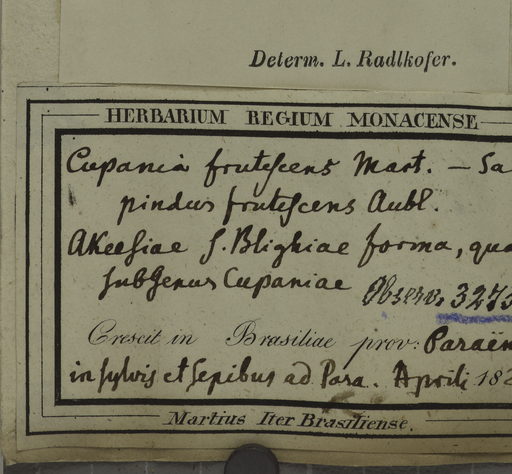 Determ. L. Radlkofer.
HERBARIUM REGIUM MONACENSE
Cupania frutescens Mart. — Sa
pindus frutescens Aubl.
Akeesiae s. Blighiae forma, qua
subgenus Cupaniae Observ. 3275
Crescit in Brasiliae prov: Paraën
in sylvis et sepibus ad Para. Aprili 182
Martius Iter Brasiliense.